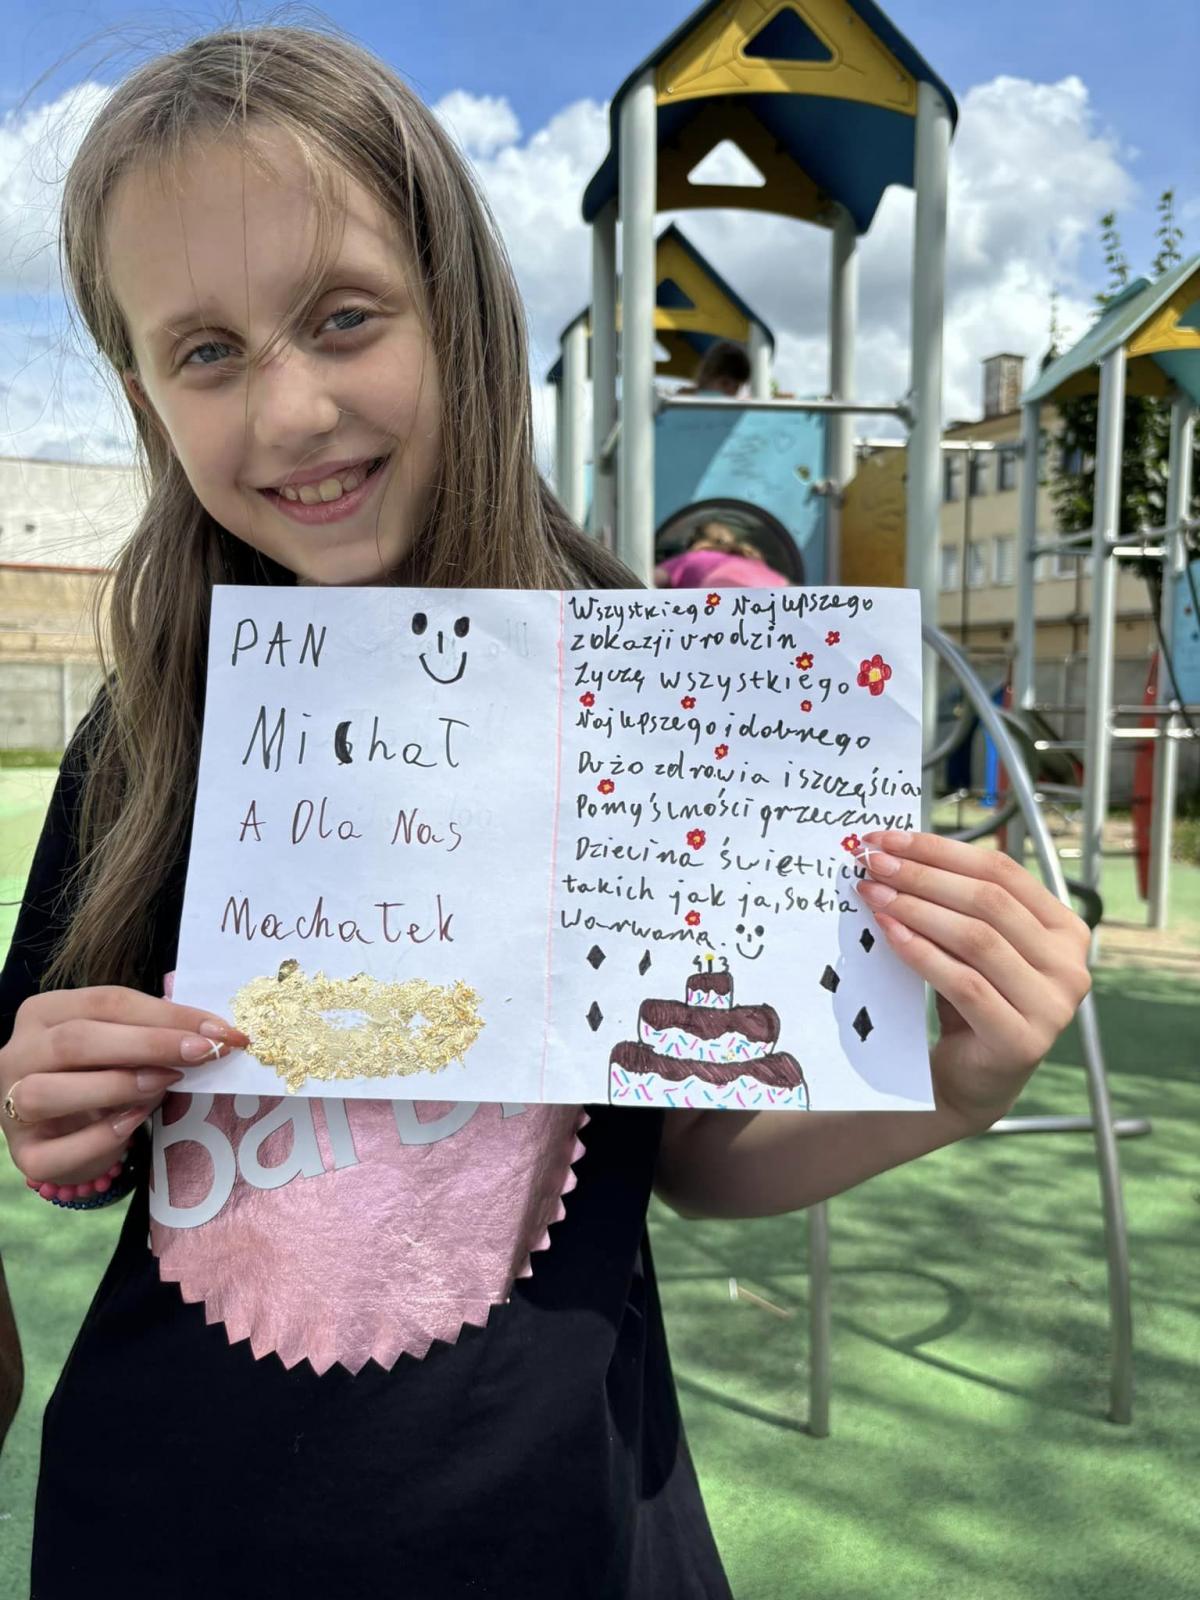 PAN
Michał
A Dla Nas
Machałek
Wszystkiego Najlepszego
z okazji urodzin
Życzę wszystkiego
Najlepszego i dobrego
Dużo zdrowia i szczęścia
Pomyślności grzecznych
Dzieci na świetlicy
takich jak ja, Sofia
Warwama.
43
Barbi